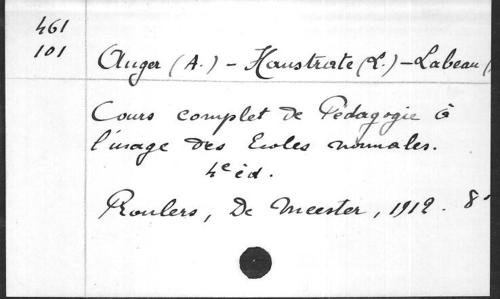 461
101
Auger (A.) - Haustrate (L.) - Labeau (
Cours complet de Pédagogie à
l'usage des Ecoles normales.
4e éd.
Roulers, De Meester, 1912. 8°